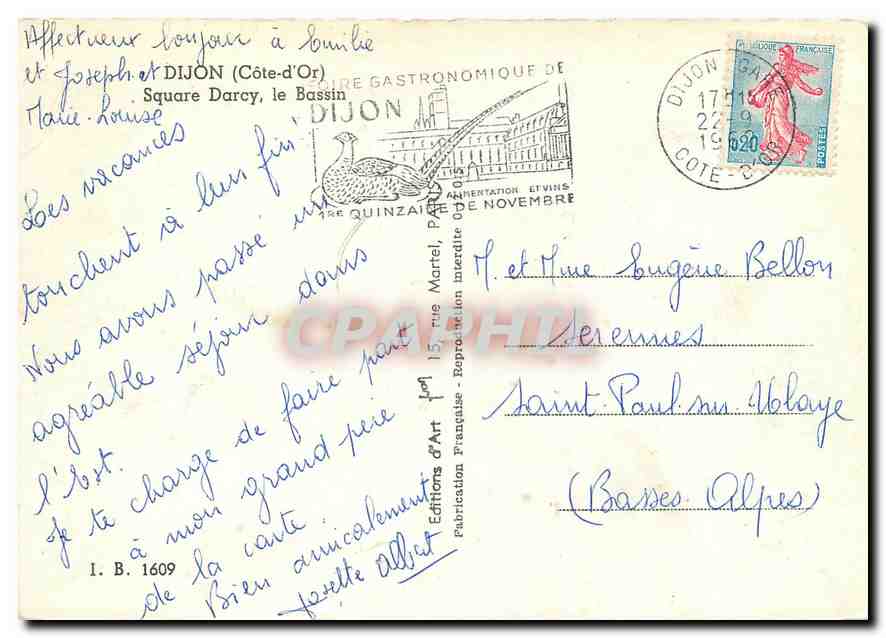 Affectueux bonjour à Emilie
et Joseph et
Marie-Louise
DIJON (Côte-d'Or)
Square Darcy, le Bassin
Les vacances
touchent à leur fin
Nous avons passé un
agréable séjour dans
l'Est.
Je te charge de faire part
à mon grand père
de la carte.
Bien amicalement
Josette Albert
I. B. 1609
FOIRE GASTRONOMIQUE DE
DIJON
ALIMENTATION ET VINS
1RE QUINZAINE DE NOVEMBRE
Editions d'Art 15, rue Martel, PARIS
Fabrication Française - Reproduction interdite
DIJON GARE
17H
22-9
19
COTE-D'OR
REPUBLIQUE FRANÇAISE
0,20
POSTES
M. et Mme Eugène Bellon
Serennes
Saint-Paul-sur-Ubaye
(Basses Alpes)
CPAPHIL